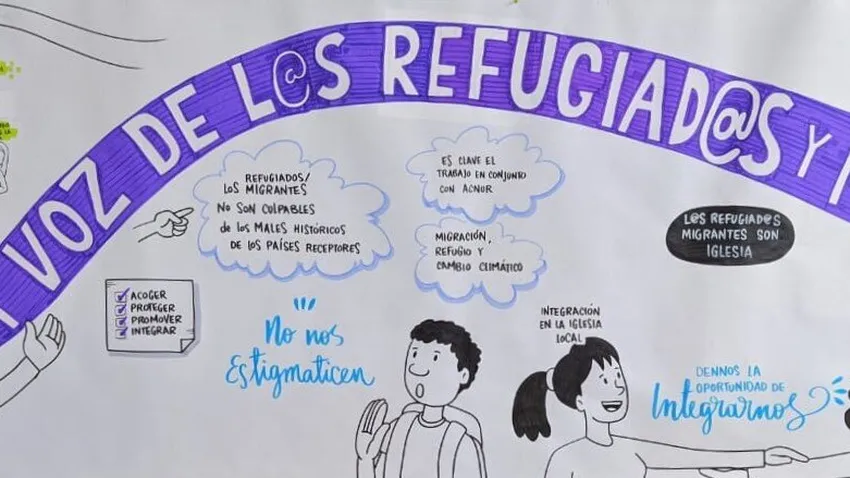 VOZ DE L@S REFUGIAD@S Y
REFUGIADOS/
LOS MIGRANTES
NO SON CULPABLES
de los MALES HISTÓRICOS
DE LOS PAÍSES RECEPTORES
ES CLAVE EL
TRABAJO EN CONJUNTO
CON ACNUR
MIGRACIÓN,
REFUGIO Y
CAMBIO CLIMÁTICO
L@S REFUGIAD@S
MIGRANTES SON
IGLESIA
ACOGER
PROTEGER
PROMOVER
INTEGRAR
No nos
Estigmaticen
INTEGRACIÓN
EN LA IGLESIA
LOCAL
DENNOS LA
OPORTUNIDAD DE
Integrarnos